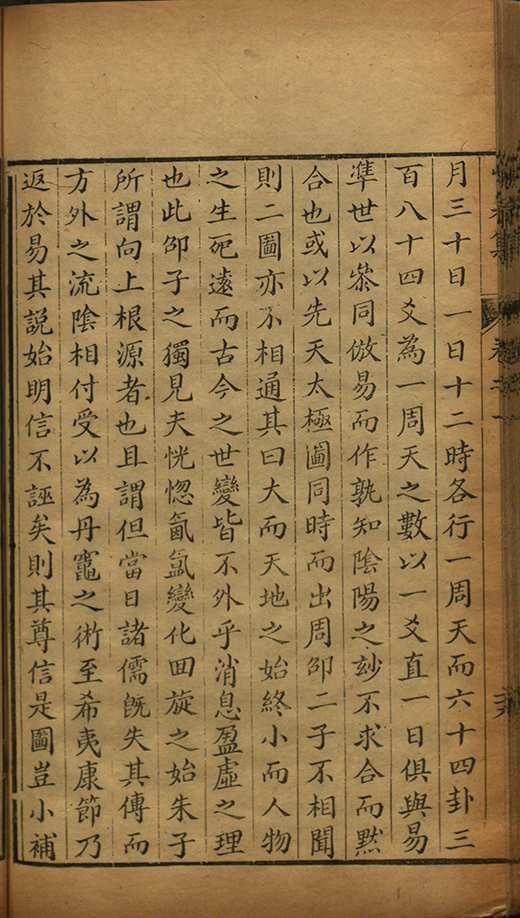 月三十日一日十二時各行一周天而六十四卦三
百八十四爻為一周天之數以一爻直一日俱與易
準世以叅同倣易而作孰知陰陽之妙不求合而黙
合也或以先天太極圖同時而出周邵二子不相聞
則二圖亦不相通其曰大而天地之始終小而人物
之生死遠而古今之世變皆不外乎消息盈虛之理
也此邵子之獨見夫恍惚氤氳變化回旋之始朱子
所謂向上根源者也且謂但當日諸儒旣失其傳而
方外之流陰相付受以為丹竈之術至希夷康節乃
返於易其説始明信不誣矣則其尊信是圖豈小補